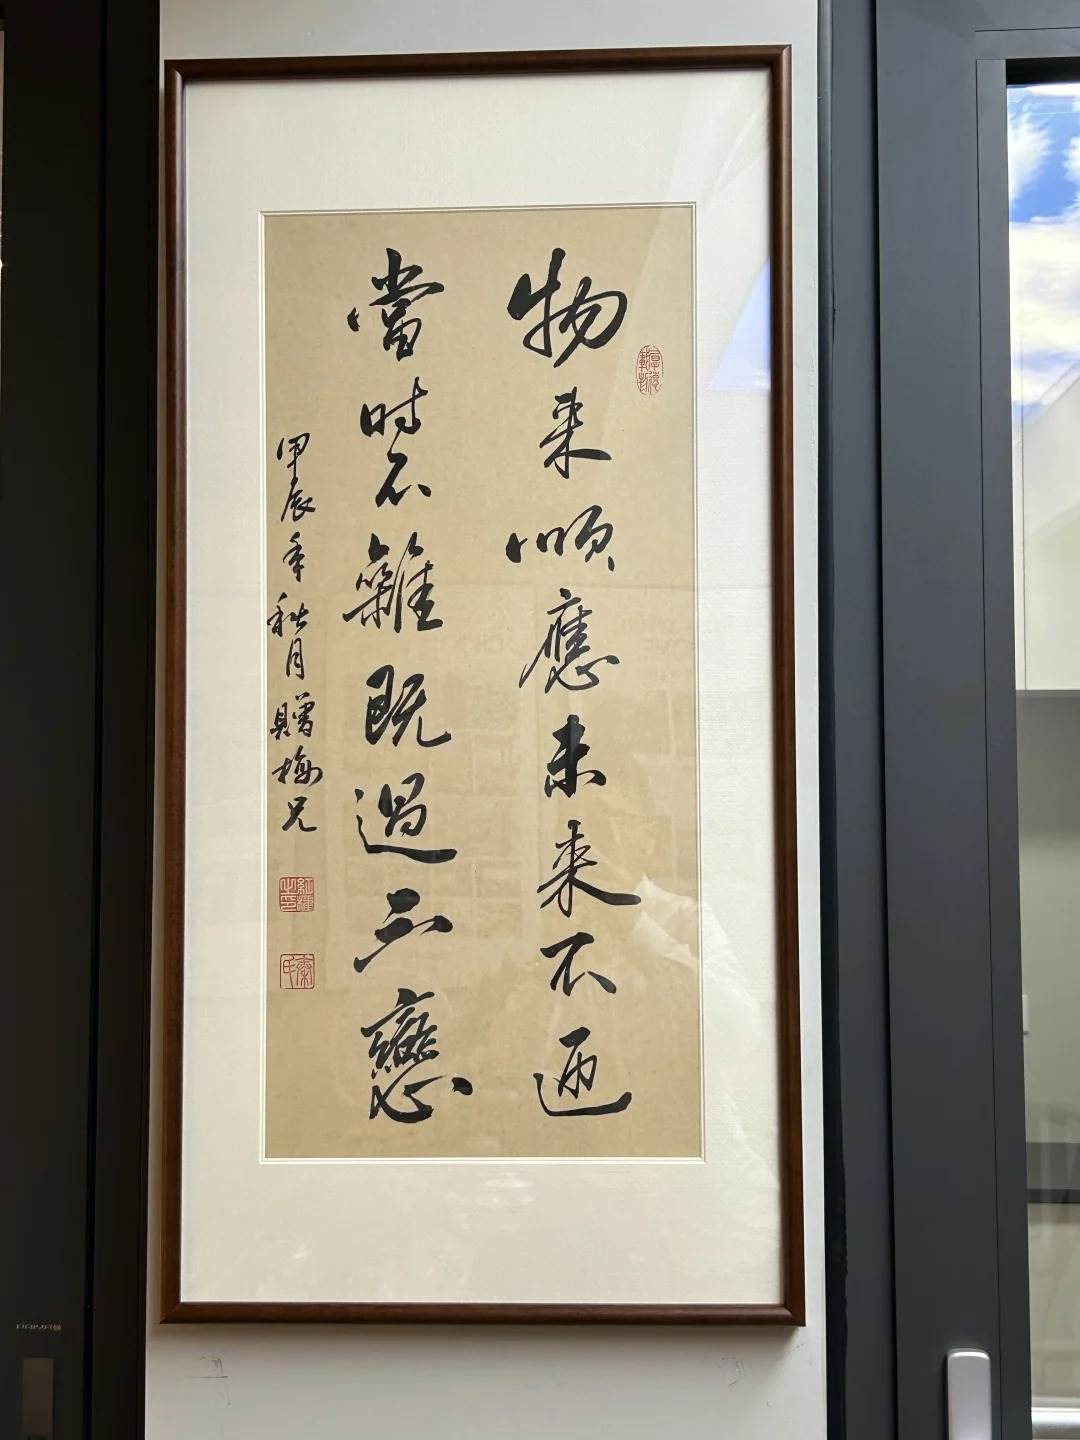 物来順應未来不迎
當時不雜既過不戀
甲辰年秋月贈梅兄